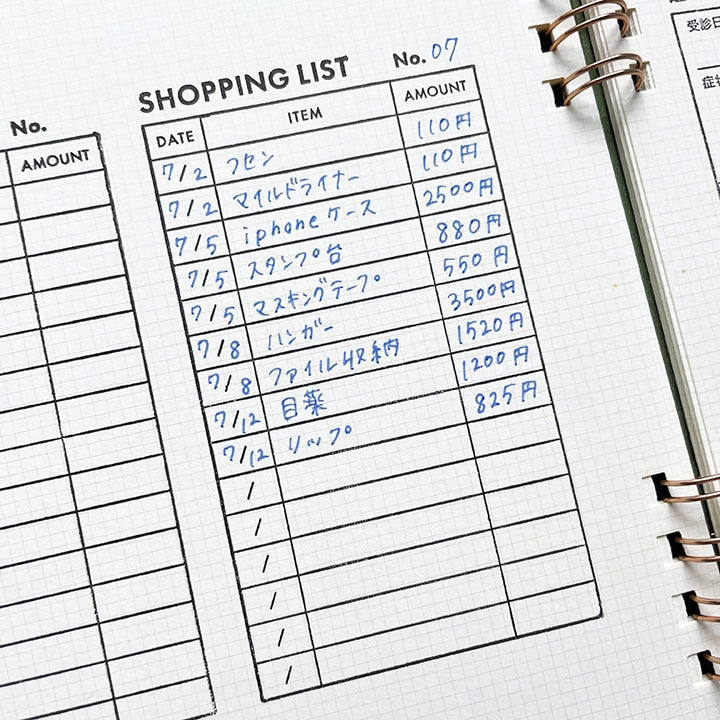 No.
AMOUNT
SHOPPING LIST No. 07
DATE ITEM AMOUNT
7/2 フセン 110円
7/2 マイルドライナー 110円
7/5 iphone ケース 2500円
7/5 スタンプ台 880円
7/5 マスキングテープ 550円
7/8 ハンガー 3500円
7/8 ファイル収納 1520円
7/12 目薬 1200円
7/12 リップ 825円
/
/
/
/
/
/
受診日
症状